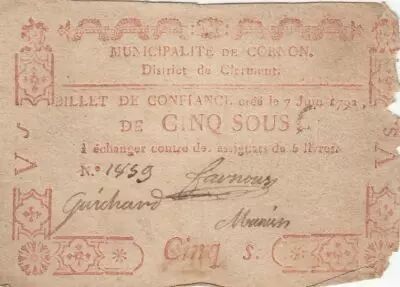 MUNICIPALITÉ DE CORNON,
District de Clermont.
BILLET DE CONFIANCE créé le 7 Juin 1792,
DE CINQ SOUS
à échanger contre des assignats de 5 livres.
N.º 1459
Guichard
Cinq S.